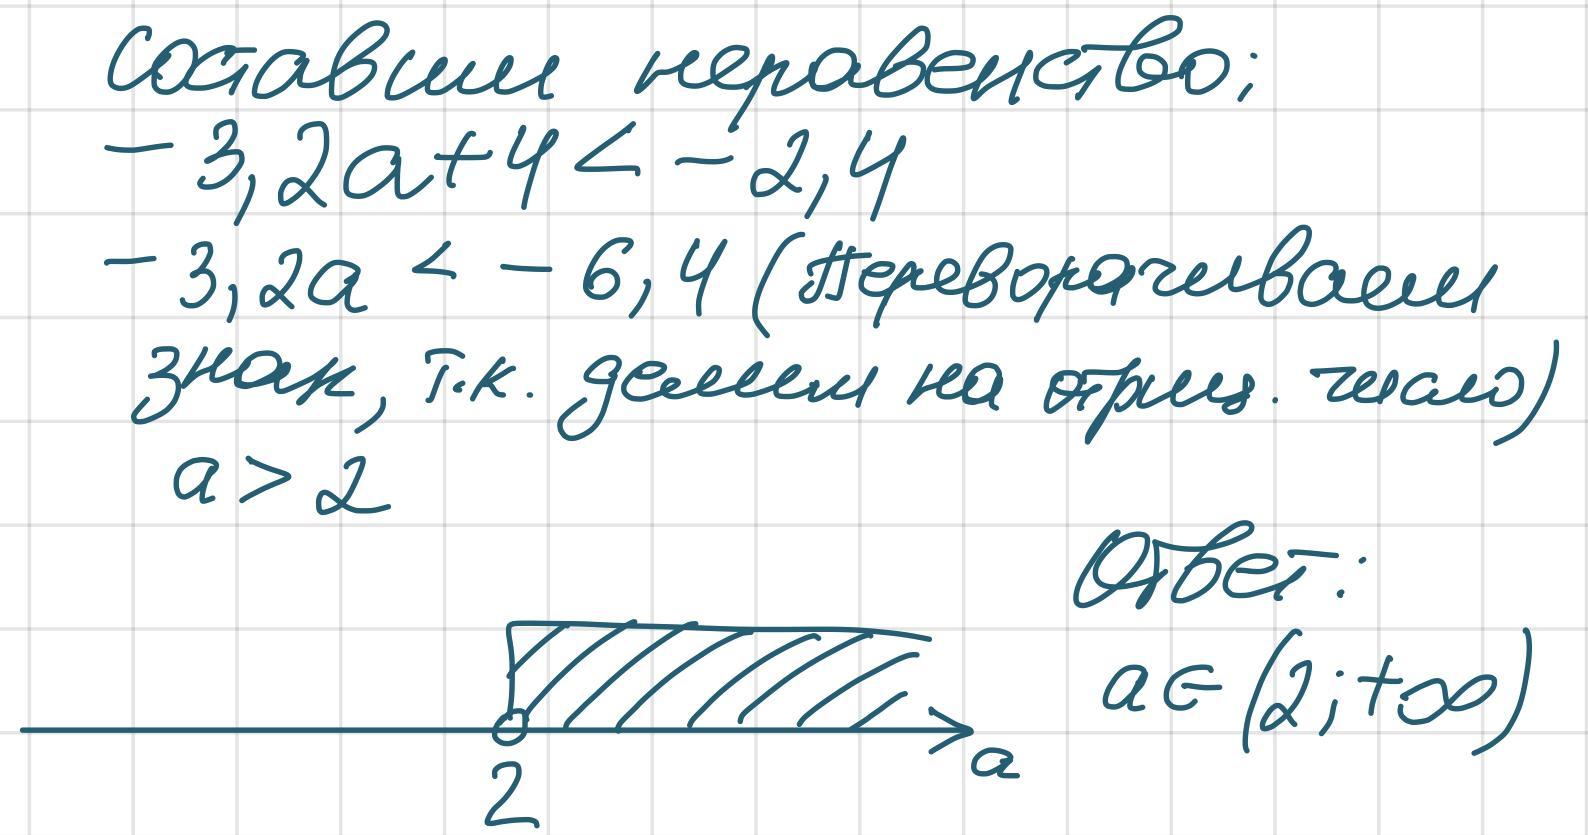 Составим неравенство:
- 3,2a+4 < - 2,4
- 3,2a < - 6,4 (Переворачиваем
знак, т.к. делим на отриц. число)
a > 2
Ответ:
a ∈ (2; +∞)
a
2